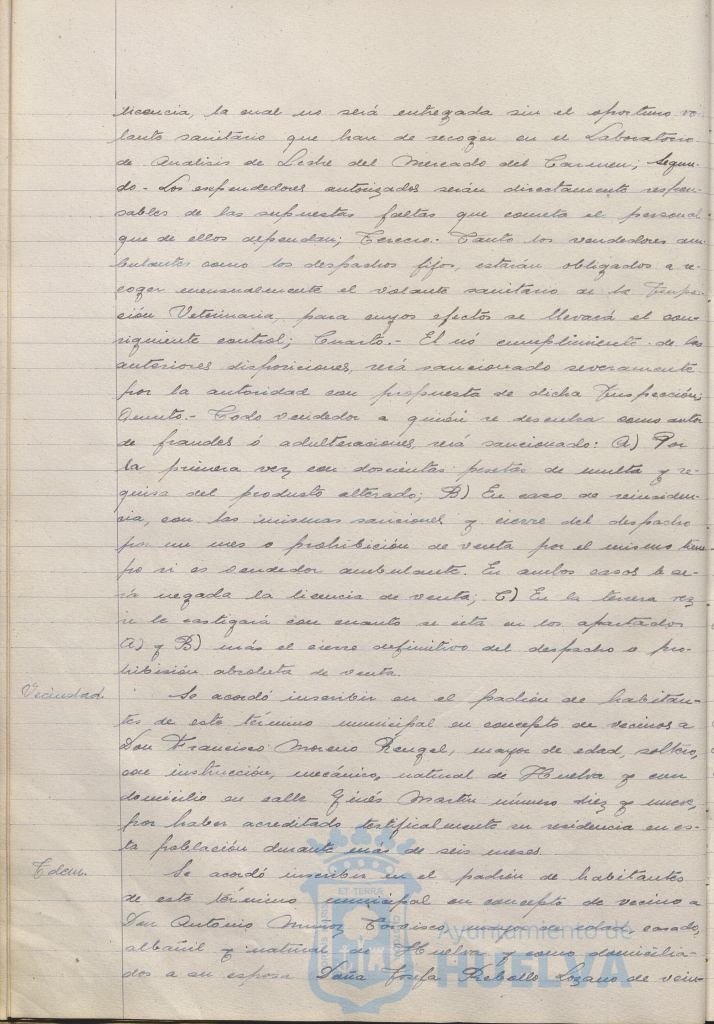 licencia, la cual no será entregada sin el oportuno vo-
lante sanitario que han de recoger en el Laboratorio
de Analisis de Leche del Mercado del Carmen; Segun-
do.- Los expendedores autorizados serán directamente respon-
sables de las supuestas faltas que cometa el personal
que de ellos dependan; Tercero.- Tanto los vendedores am-
bulantes como los despachos fijos, estarán obligados a re-
coger mensualmente el volante sanitario de la Inspec-
ción Veterinaria, para cuyos efectos se llevará el con-
siguiente control; Cuarto.- El nó cumplimiento de las
anteriores disposiciones, será sancionado severamente
por la autoridad con propuesta de dicha Inspección;
Quinto.- Todo vendedor a quién se descubra como autor
de fraudes ó adulteraciones, será sancionado: A) Por
la primera vez con doscientas pesetas de multa y re-
quisa del producto alterado; B) En caso de reinciden-
cia, con las mismas sanciones y cierre del despacho
por un mes o prohibición de venta por el mismo tiem-
po si es vendedor ambulante. En ambos casos le se-
rá negada la licencia de venta; C) En la tercera vez
se le castigará con cuanto se cita en los apartados
A) y B) más el cierre definitivo del despacho o pro-
hibición absoluta de venta.
Vecindad.
Se acordó inscribir en el padrón de habitan-
tes de este término municipal en concepto de vecinos a
Don Francisco Moreno Rengel, mayor de edad, soltero,
con instrucción, mecánico, natural de Huelva y con
domicilio en calle Ginés Martín número diez y nueve,
por haber acreditado testificalmente su residencia en es-
ta población durante más de seis meses.
Idem.
Se acordó inscribir en el padrón de habitantes
de este término municipal en concepto de vecino a
Don Antonio Muñoz mayor de edad, casado,
albañil y natural de Huelva y como domicilia-
dos a su esposa Doña Josefa Rebollo Lozano de vein-
ET TERRÆ
Ayuntamiento de
HUELVA